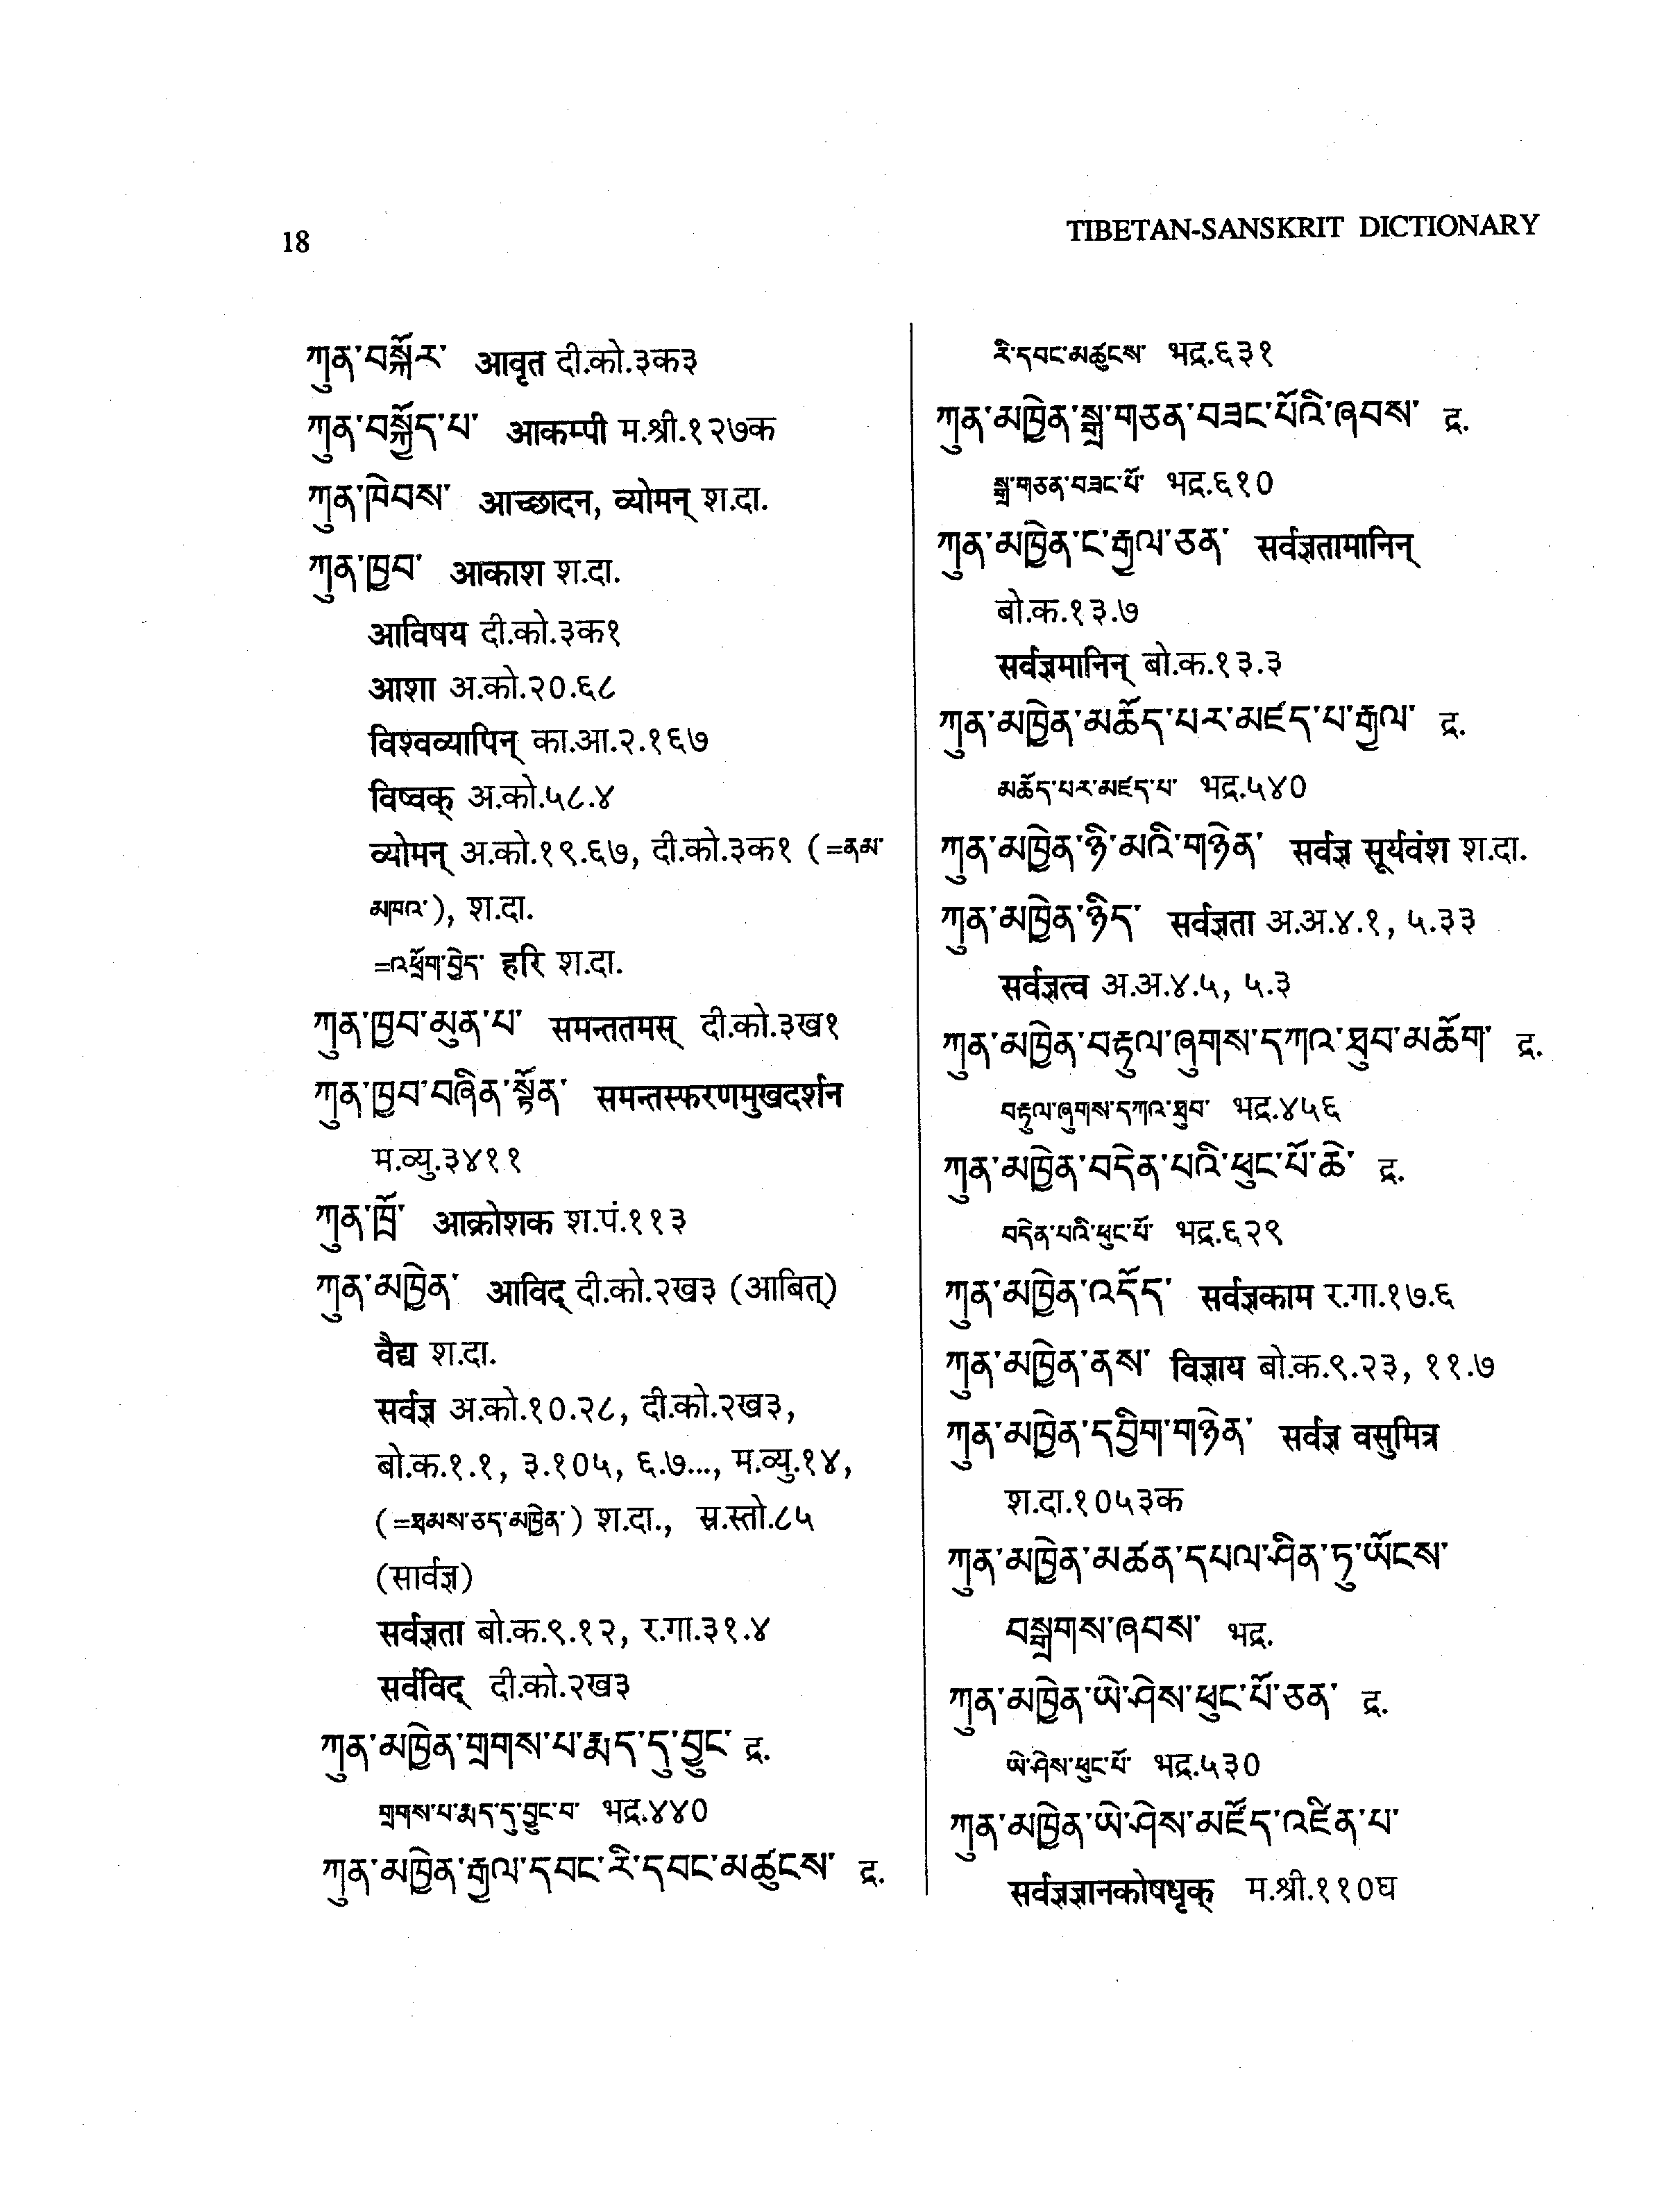 18
TIBETAN-SANSKRIT DICTIONARY
ཀུན་བསྐོར་ आवृत दी.को.३क३
ཀུན་བསྐྱོད་པ་ आकम्पी म.श्री.१२७क
ཀུན་ཁེབས་ आच्छादन, व्योमन् श.दा.
ཀུན་ཁྱབ་ आकाश श.दा.
आविषय दी.को.३क१
आशा अ.को.२०.६८
विश्वव्यापिन् का.आ.२.१६७
विष्वक् अ.को.५८.४
व्योमन् अ.को.१९.६७, दी.को.३क१ (=ནམ་
མཁའ་), श.दा.
=འཕྲོག་བྱེད་ हरि श.दा.
ཀུན་ཁྱབ་མུན་པ་ समन्ततमस् दी.को.३ख१
ཀུན་ཁྱབ་བཞིན་སྟོན་ समन्तस्फरणमुखदर्शन
म.व्यु.३४११
ཀུན་ཁྲོ་ आक्रोशक श.पं.११३
ཀུན་མཁྱེན་ आविद् दी.को.२ख३ (आबित्)
वैद्य श.दा.
सर्वज्ञ अ.को.१०.२८, दी.को.२ख३,
बो.क.१.१, ३.१०५, ६.७..., म.व्यु.१४,
(=ཐམས་ཅད་མཁྱེན་) श.दा., स्र.स्तो.८५
(सार्वज्ञ)
सर्वज्ञता बो.क.९.१२, र.गा.३१.४
सर्वविद् दी.को.२ख३
ཀུན་མཁྱེན་གྲགས་པ་རྨད་དུ་བྱུང་ द्र.
གྲགས་པ་རྨད་དུ་བྱུང་བ་ भद्र.४४०
ཀུན་མཁྱེན་རྒྱལ་དབང་རི་དབང་མཚུངས་ द्र.
རི་དབང་མཚུངས་ भद्र.६३१
ཀུན་མཁྱེན་སྒྲ་གཅན་བཟང་པོའི་ཞབས་ द्र.
སྒྲ་གཅན་བཟང་པོ་ भद्र.६१०
ཀུན་མཁྱེན་ང་རྒྱལ་ཅན་ सर्वज्ञतामानिन्
बो.क.१३.७
सर्वज्ञमानिन् बो.क.१३.३
ཀུན་མཁྱེན་མཆོད་པར་མཛད་པ་རྒྱལ་ द्र.
མཆོད་པར་མཛད་པ་ भद्र.५४०
ཀུན་མཁྱེན་ཉི་མའི་གཉེན་ सर्वज्ञ सूर्यवंश श.दा.
ཀུན་མཁྱེན་ཉིད་ सर्वज्ञता अ.अ.४.१, ५.३३
सर्वज्ञत्व अ.अ.४.५, ५.३
ཀུན་མཁྱེན་བརྟུལ་ཞུགས་དཀའ་ཐུབ་མཆོག་ द्र.
བརྟུལ་ཞུགས་དཀའ་ཐུབ་ भद्र.४५६
ཀུན་མཁྱེན་བདེན་པའི་ཕུང་པོ་ཆེ་ द्र.
བདེན་པའི་ཕུང་པོ་ भद्र.६२९
ཀུན་མཁྱེན་འདོད་ सर्वज्ञकाम र.गा.१७.६
ཀུན་མཁྱེན་ནས་ विज्ञाय बो.क.९.२३, ११.७
ཀུན་མཁྱེན་དབྱིག་གཉེན་ सर्वज्ञ वसुमित्र
श.दा.१०५३क
ཀུན་མཁྱེན་མཚན་དཔལ་ཤིན་ཏུ་ཡོངས་
བསྒྲགས་ཞབས་ भद्र.
ཀུན་མཁྱེན་ཡེ་ཤེས་ཕུང་པོ་ཅན་ द्र.
ཡེ་ཤེས་ཕུང་པོ་ भद्र.५३०
ཀུན་མཁྱེན་ཡེ་ཤེས་མཛོད་འཛིན་པ་
सर्वज्ञज्ञानकोषधृक् म.श्री.११०घ